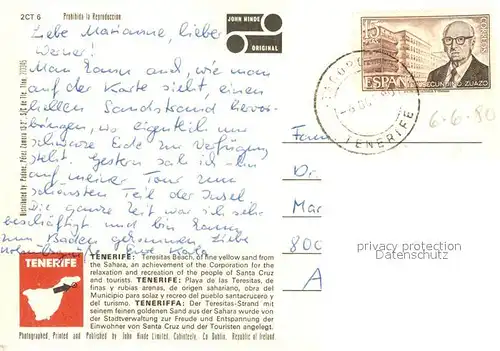 2CT 6
Prohibida la Reproduccion
JOHN HINDE
ORIGINAL
Liebe Marianne, lieber
Werner!
Man kann auf, wie man
auf der Karte sieht, einen
hellen Sandstrand hervor-
bringen, wo eigentlich nur
schwarze Erde zur Verfügung
steht. Gestern sah ich ihn
auf meiner Tour zum
schönsten Teil der Insel
Die ganze Zeit war ich sehr
beschäftigt und bin kaum
zum Baden gekommen. Liebe
Eure Karte
15
PTAS
CORREOS
ESPAÑA
SECUNDINO ZUAZO
TENERIFE
6.6.80
Fam
Dr.
Mar
800
A
privacy protection
Datenschutz
TENERIFE
TENERIFE: Teresitas Beach, of fine yellow sand from
the Sahara, an achievement of the Corporation for the
relaxation and recreation of the people of Santa Cruz
and tourists. TENERIFE: Playa de las Teresitas, de
finas y rubias arenas, de origen sahariano, obra del
Municipio para solaz y recreo del pueblo santacrucero y
del turismo. TENERIFFA: Der Teresitas-Strand mit
seinem feinen goldenen Sand aus der Sahara wurde von
der Stadtverwaltung zur Freude und Entspannung der
Einwohner von Santa Cruz und der Touristen angelegt.
Photographed, Printed and Published by John Hinde Limited, Cabinteely, Co Dublin, Republic of Ireland